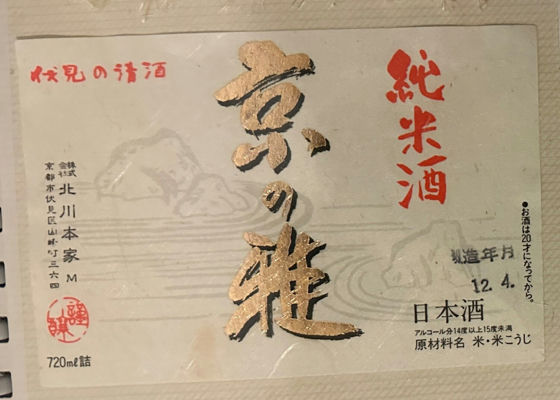 伏見の清酒
純米酒
京の雅
株式会社 北川本家 M
京都市伏見区山崎町三六四
謹醸
720ml詰
●お酒は20才になってから。
製造年月
12.4.
日本酒
アルコール分14度以上15度未満
原材料名 米・米こうじ